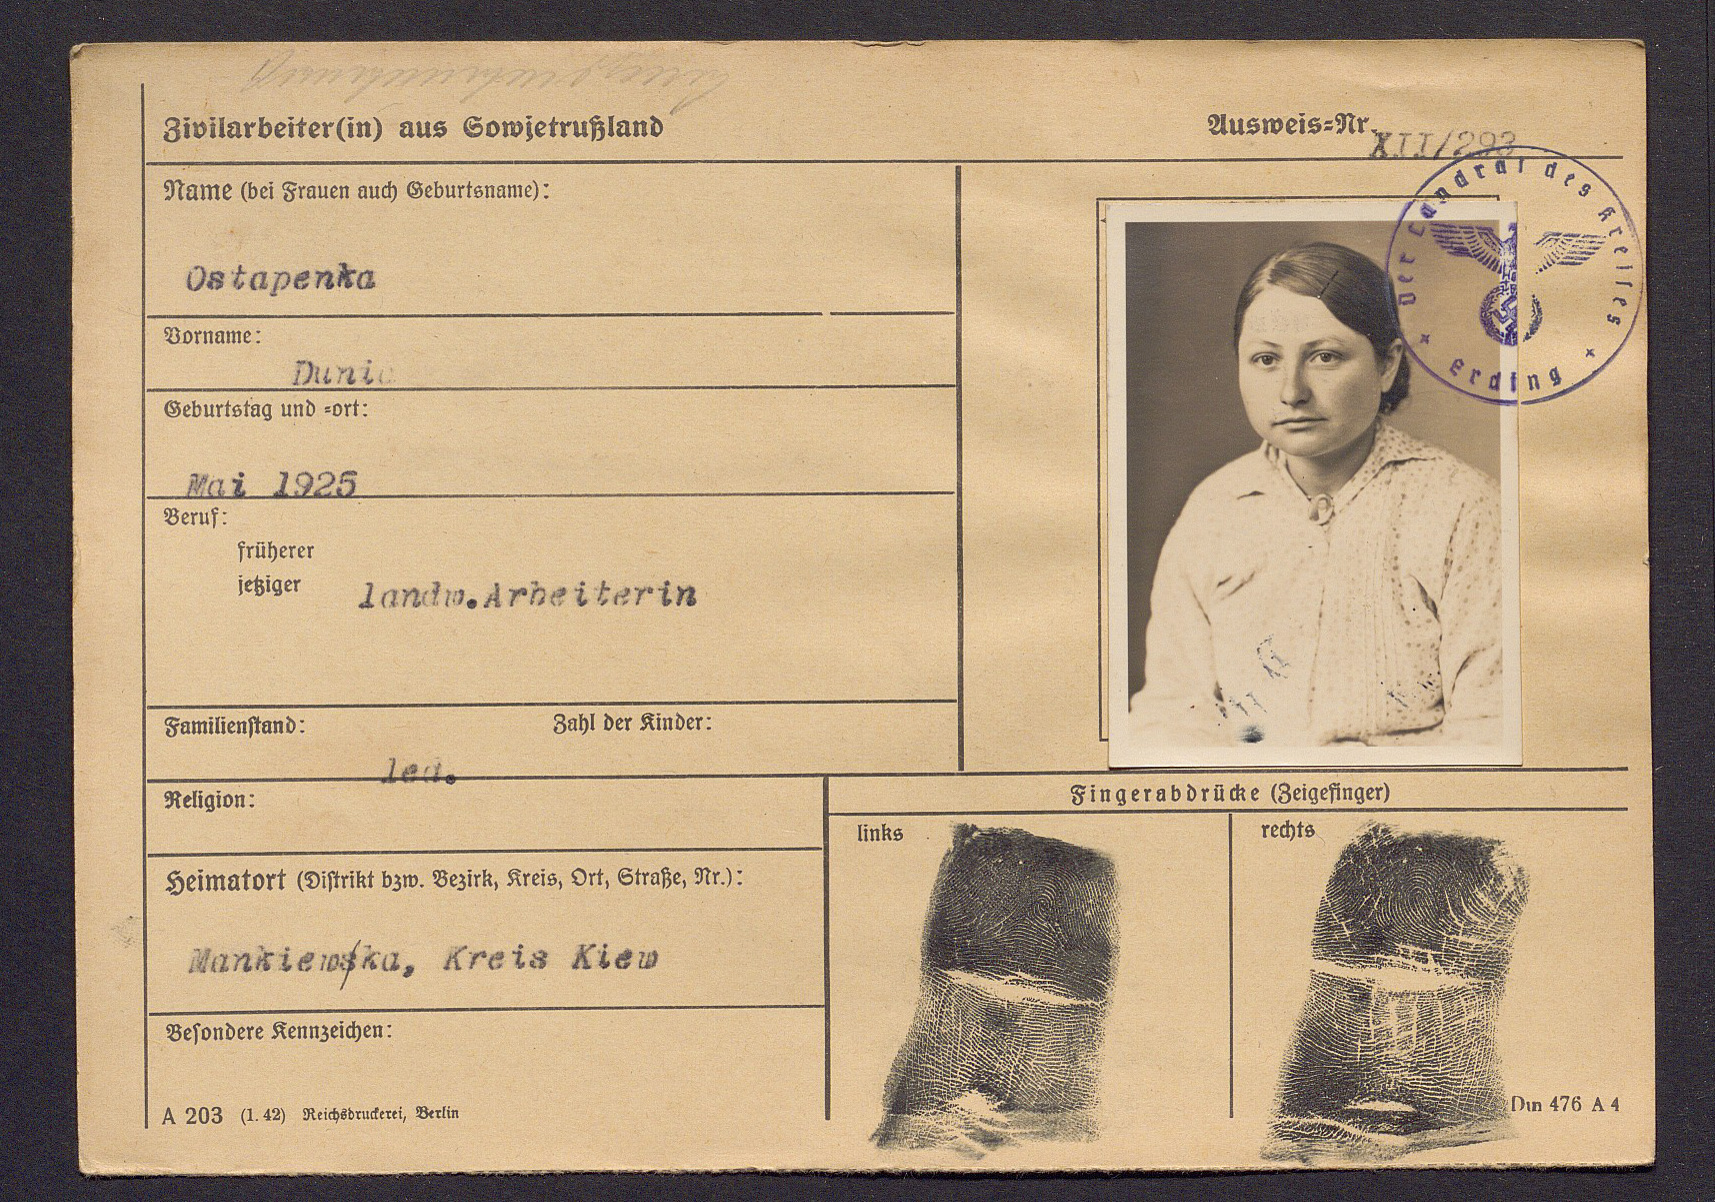 Zivilarbeiter(in) aus Sowjetrußland
Ausweis-Nr. XII/293
Name (bei Frauen auch Geburtsname):
Ostapenka
Vorname:
Dunia
Geburtstag und -ort:
Mai 1925
Beruf:
früherer
jetziger landw.Arbeiterin
Familienstand: Zahl der Kinder:
led.
Religion:
Heimatort (Distrikt bzw. Bezirk, Kreis, Ort, Straße, Nr.):
Mankiewska, Kreis Kiew
Besondere Kennzeichen:
A 203 (1. 42) Reichsdruckerei, Berlin
Der Landrat des Kreises
Erding
Fingerabdrücke (Zeigefinger)
links rechts
Din 476 A 4